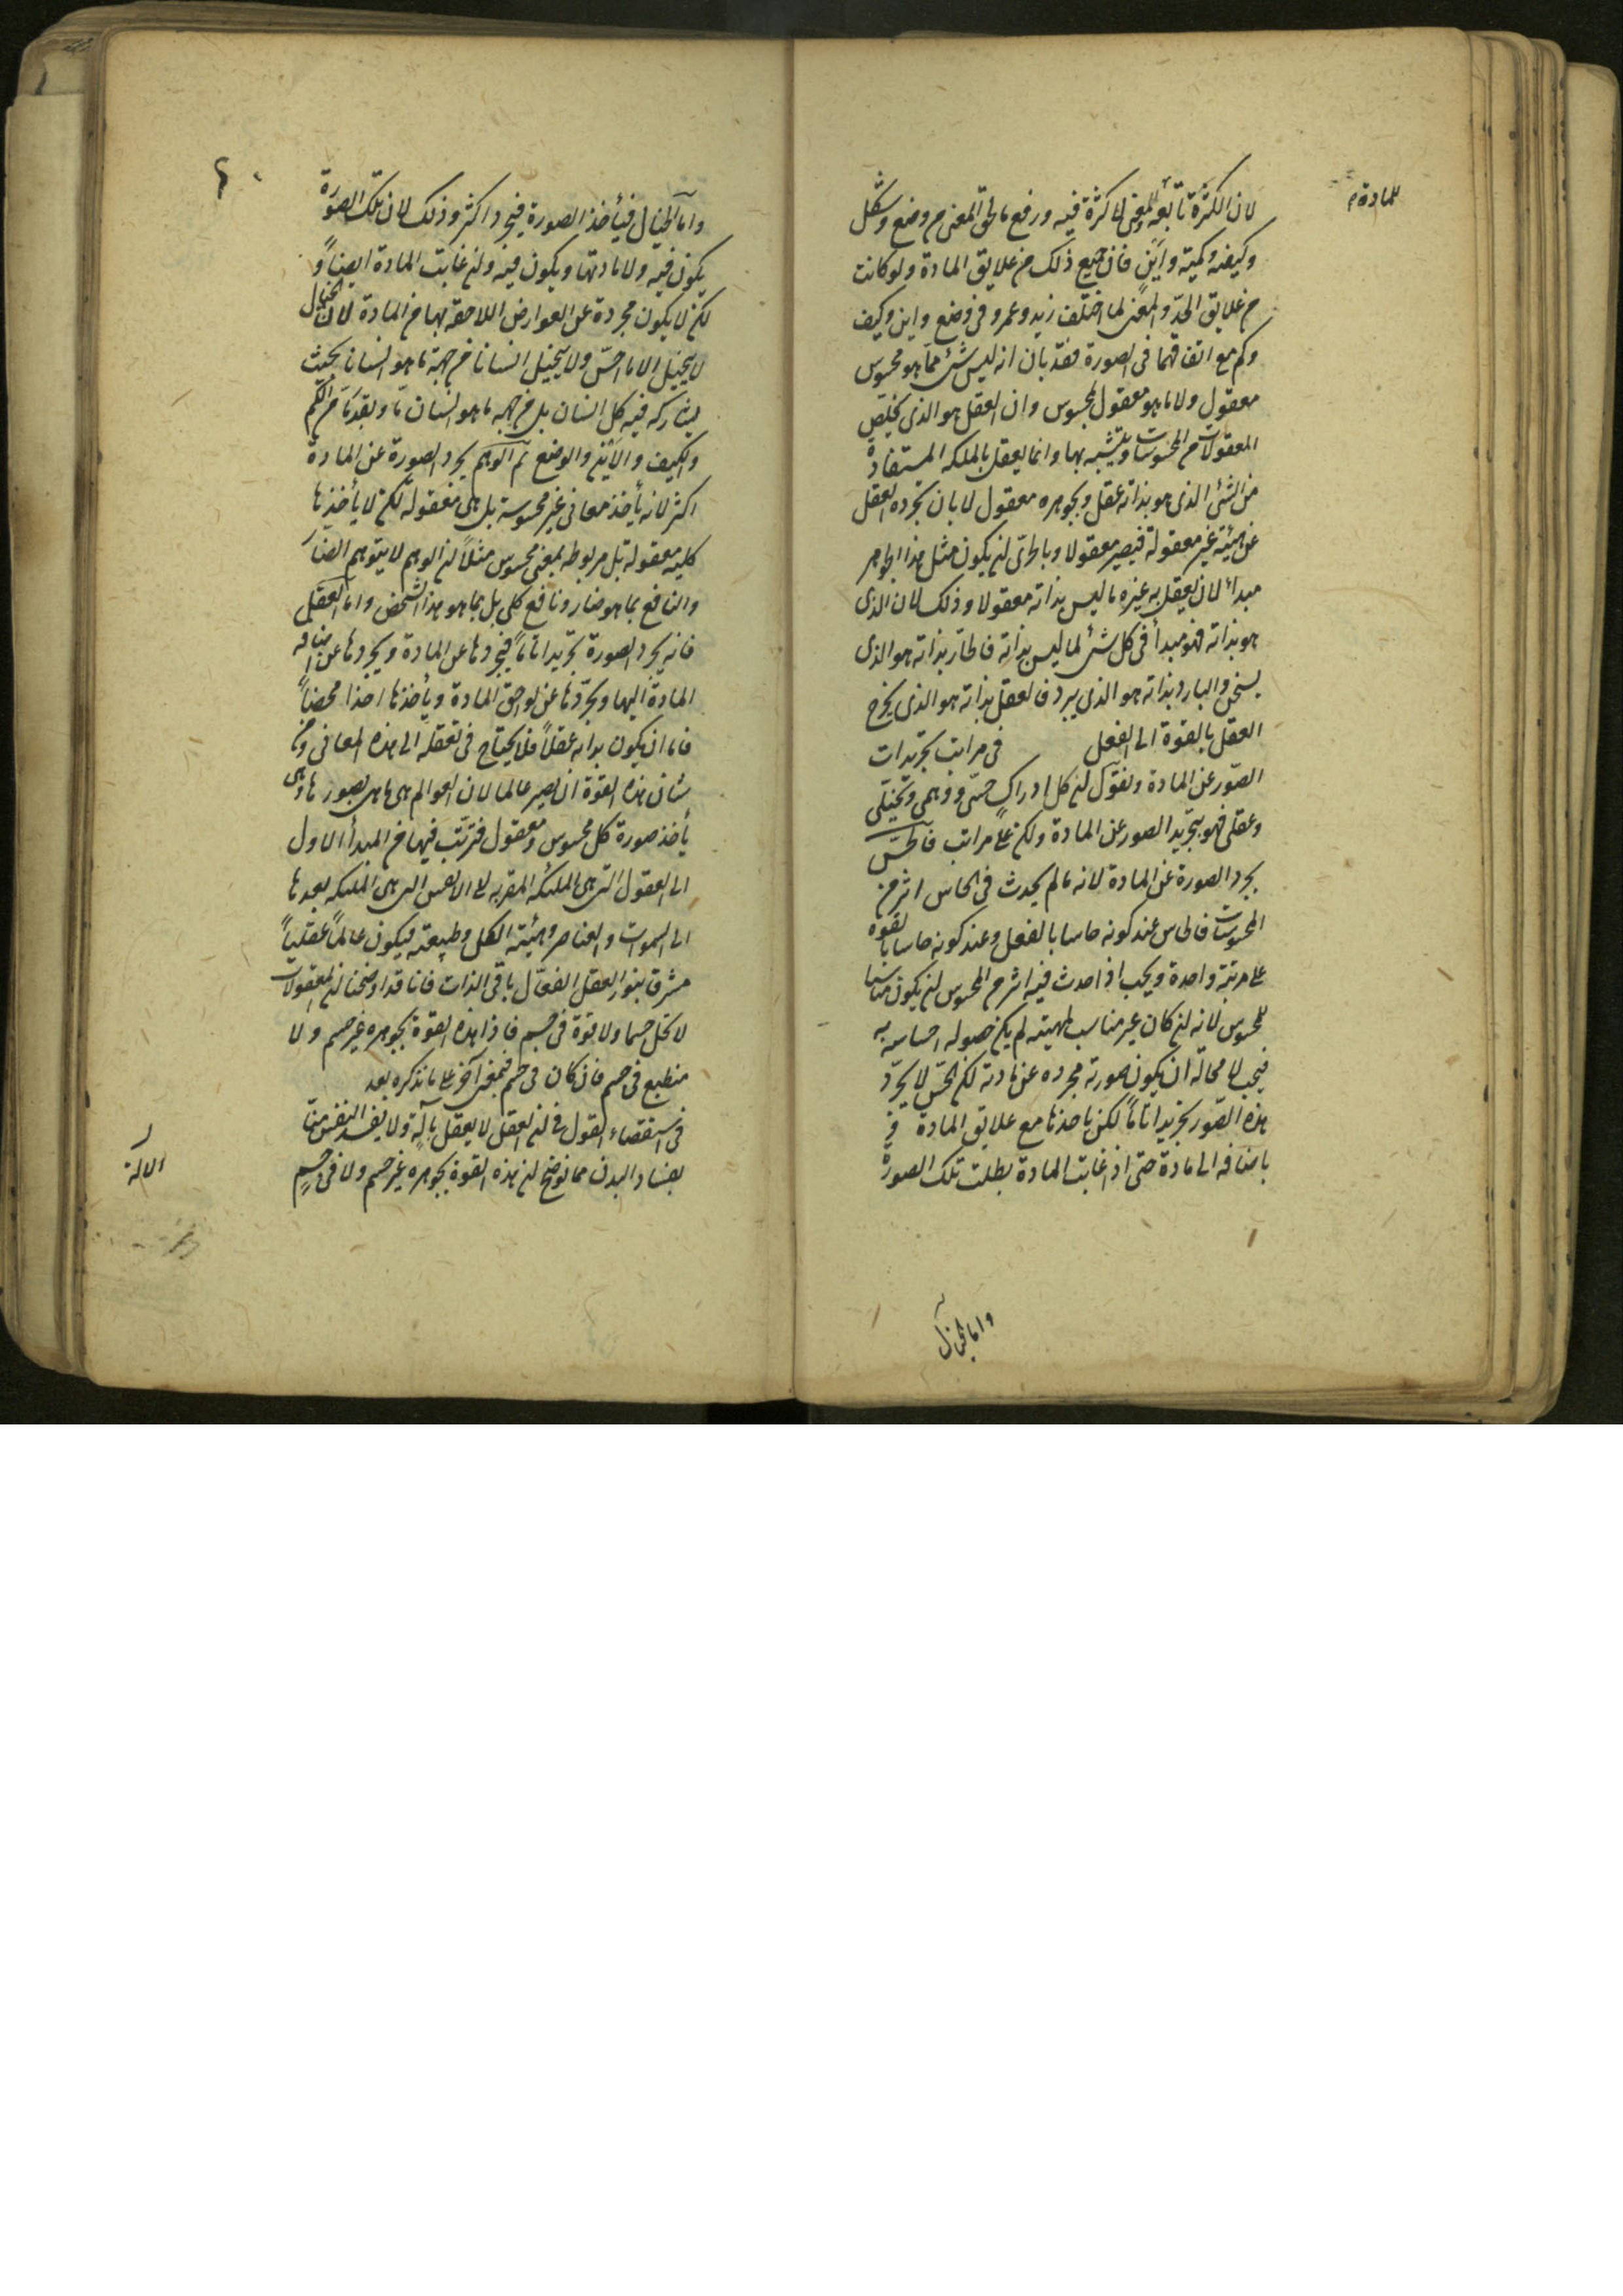 للمادة م
لان الكثرة تابعة للمعنى لا كثرة فيه ورفع ما لحق المعنى من وضع وشكل
وكيفيه وكميته واين فان جميع ذلك من علايق المادة ولو كانت
من علايق الحدّ والمعنى لما اختلف زيد وعمرو فى وضع واين وكيف
وكم مع اتفاقهما فى الصورة فقد بان انه ليس شئ مما هو محسوس
معقول ولا ما هو معقول بمحسوس وان العقل هو الذى يخلّص
المعقولات من المحسوسات ويتشبه بها وانما يعقل بالملكه المستفادة
من الشئ الذى هو بذاته عقل وبجوهره معقول لا بان يجرده العقل
عن هيئته غير معقولة فيصير معقولا وبالحرى ان يكون مثل هذا الجوهر
مبدأ لان يعقل به غيره ما ليس بذاته معقولا وذلك لان الذى
هو بذاته فهو مبدأ فى كل شئ لما ليس بذاته فالحار بذاته هو الذى
يسخن والبارد بذاته هو الذى يبرد فالعقل بذاته هو الذى يخرج
العقل بالقوة الى الفعل فى مراتب تجريدات
الصّور عن المادة ونقول ان كل ادراك حسّى ووهمى وتخيّلى
وعقلى فهو بتجريد الصور عن المادة ولكن على مراتب فالحسّ
يجرد الصورة عن المادة لانه ما لم يحدث فى الحاس اثر من
المحسوسات فالحاس عند كونه حاسا بالفعل وعند كونه حاسا بالقوه
على مرتبة واحدة ويجب اذا حدث فيه اثر من المحسوس ان يكون مناسبا
للمحسوس لانه ان كان غير مناسب لمهيته لم يكن حصوله احساسه به
فيجب لا محالة ان يكون صورته مجرده عن مادته لكن الحسّ لا يجرّد
هذه الصّور تجريدا تاماً لكن ياخذها مع علايق المادة و
باضافه الى مادة حتى اذا غابت المادة بطلت تلك الصورة
واما الخيال
واما الخيال فيأخذ الصورة فيجرد اكثر وذلك لان تلك الصّورة
يكون فيه ولا مادتها ويكون فيه وان غابت المادة ايضاً و
لكن لا يكون مجردة عن العوارض اللاحقه بها من المادة لان الخيال
لا يتخيل الا ما احسّ ولا يتخيل انسانا من جهة ما هو انسان بحيث
يشاركه فيه كل انسان بل من جهه ما هو انسان مّا وبقدر مّا من الكم
والكيف والاين والوضع ثم الوهم يجرد الصورة عن المادة
اكثر لانه يأخذ معانى غير محسوسة بل هى معقولة لكن لا يأخذها
كليه معقولة بل مربوطه بمعنى محسوس مثلاً ان الوهم لا يتوهم الضار
والنافع بما هو ضار ونافع كلى بل بما هو هذا الشخص واما العقل
فانه يجرد الصورة تجريدا تاماً فيجردها عن المادة ويجردها عن اضافه
المادة اليها ويجرّدها عن لواحق المادة ويأخذها اخذا محضاً
فاما ان يكون بذاته عقلاً فلا يحتاج فى تعقله الى هذه المعانى ومن
شان هذه القوة ان يصير عالما لان العوالم هى ما هى بصورها وهى
يأخذ صورة كل محسوس ومعقول فترتّب فيها من المبدأ الاول
الى العقول التى هى الملئكه المقربه الى الانفس التى هى الملئكه بعدها
الى السموات والعناصر وهيئة الكل وطبيعته فيكون عالماً عقلياً
مشرقا بنور العقل الفعّال باقى الذات فانا قد اوضحنا ان المعقولات
لا تحل جسما ولا قوة فى جسم فاذا هذه القوة بجوهره غير جسم ولا
منطبع فى جسم فان كان فى جسم فبمعنى آخر على ما نذكره بعد
فى استقصاء القول فى ان العقل لا يعقل بآلة ولا يفسد النفس منا
بفساد البدن مما نوضح ان هذه القوة بجوهره غير جسم ولا فى جسمٍ
الالة